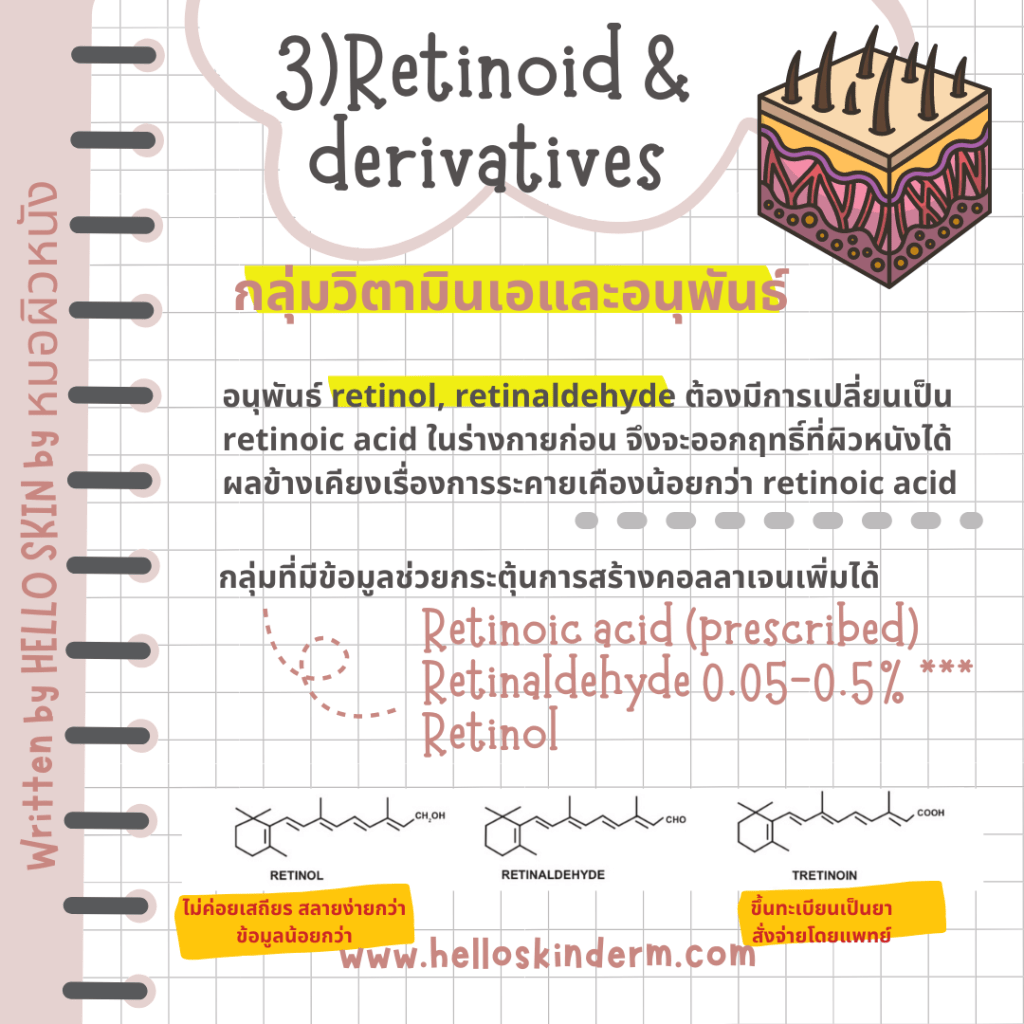 3)Retinoid &
derivatives
กลุ่มวิตามินเอและอนุพันธ์
อนุพันธ์ retinol, retinaldehyde ต้องมีการเปลี่ยนเป็น
retinoic acid ในร่างกายก่อน จึงจะออกฤทธิ์ที่ผิวหนังได้
ผลข้างเคียงเรื่องการระคายเคืองน้อยกว่า retinoic acid
กลุ่มที่มีข้อมูลช่วยกระตุ้นการสร้างคอลลาเจนเพิ่มได้
Retinoic acid (prescribed)
Retinaldehyde 0.05-0.5% ***
Retinol
CH₂OH
CHO
COOH
RETINOL
RETINALDEHYDE
TRETINOIN
ไม่ค่อยเสถียร สลายง่ายกว่า
ข้อมูลน้อยกว่า
ขึ้นทะเบียนเป็นยา
สั่งจ่ายโดยแพทย์
www.helloskinderm.com
Written by HELLO SKIN by หมอผิวหนัง